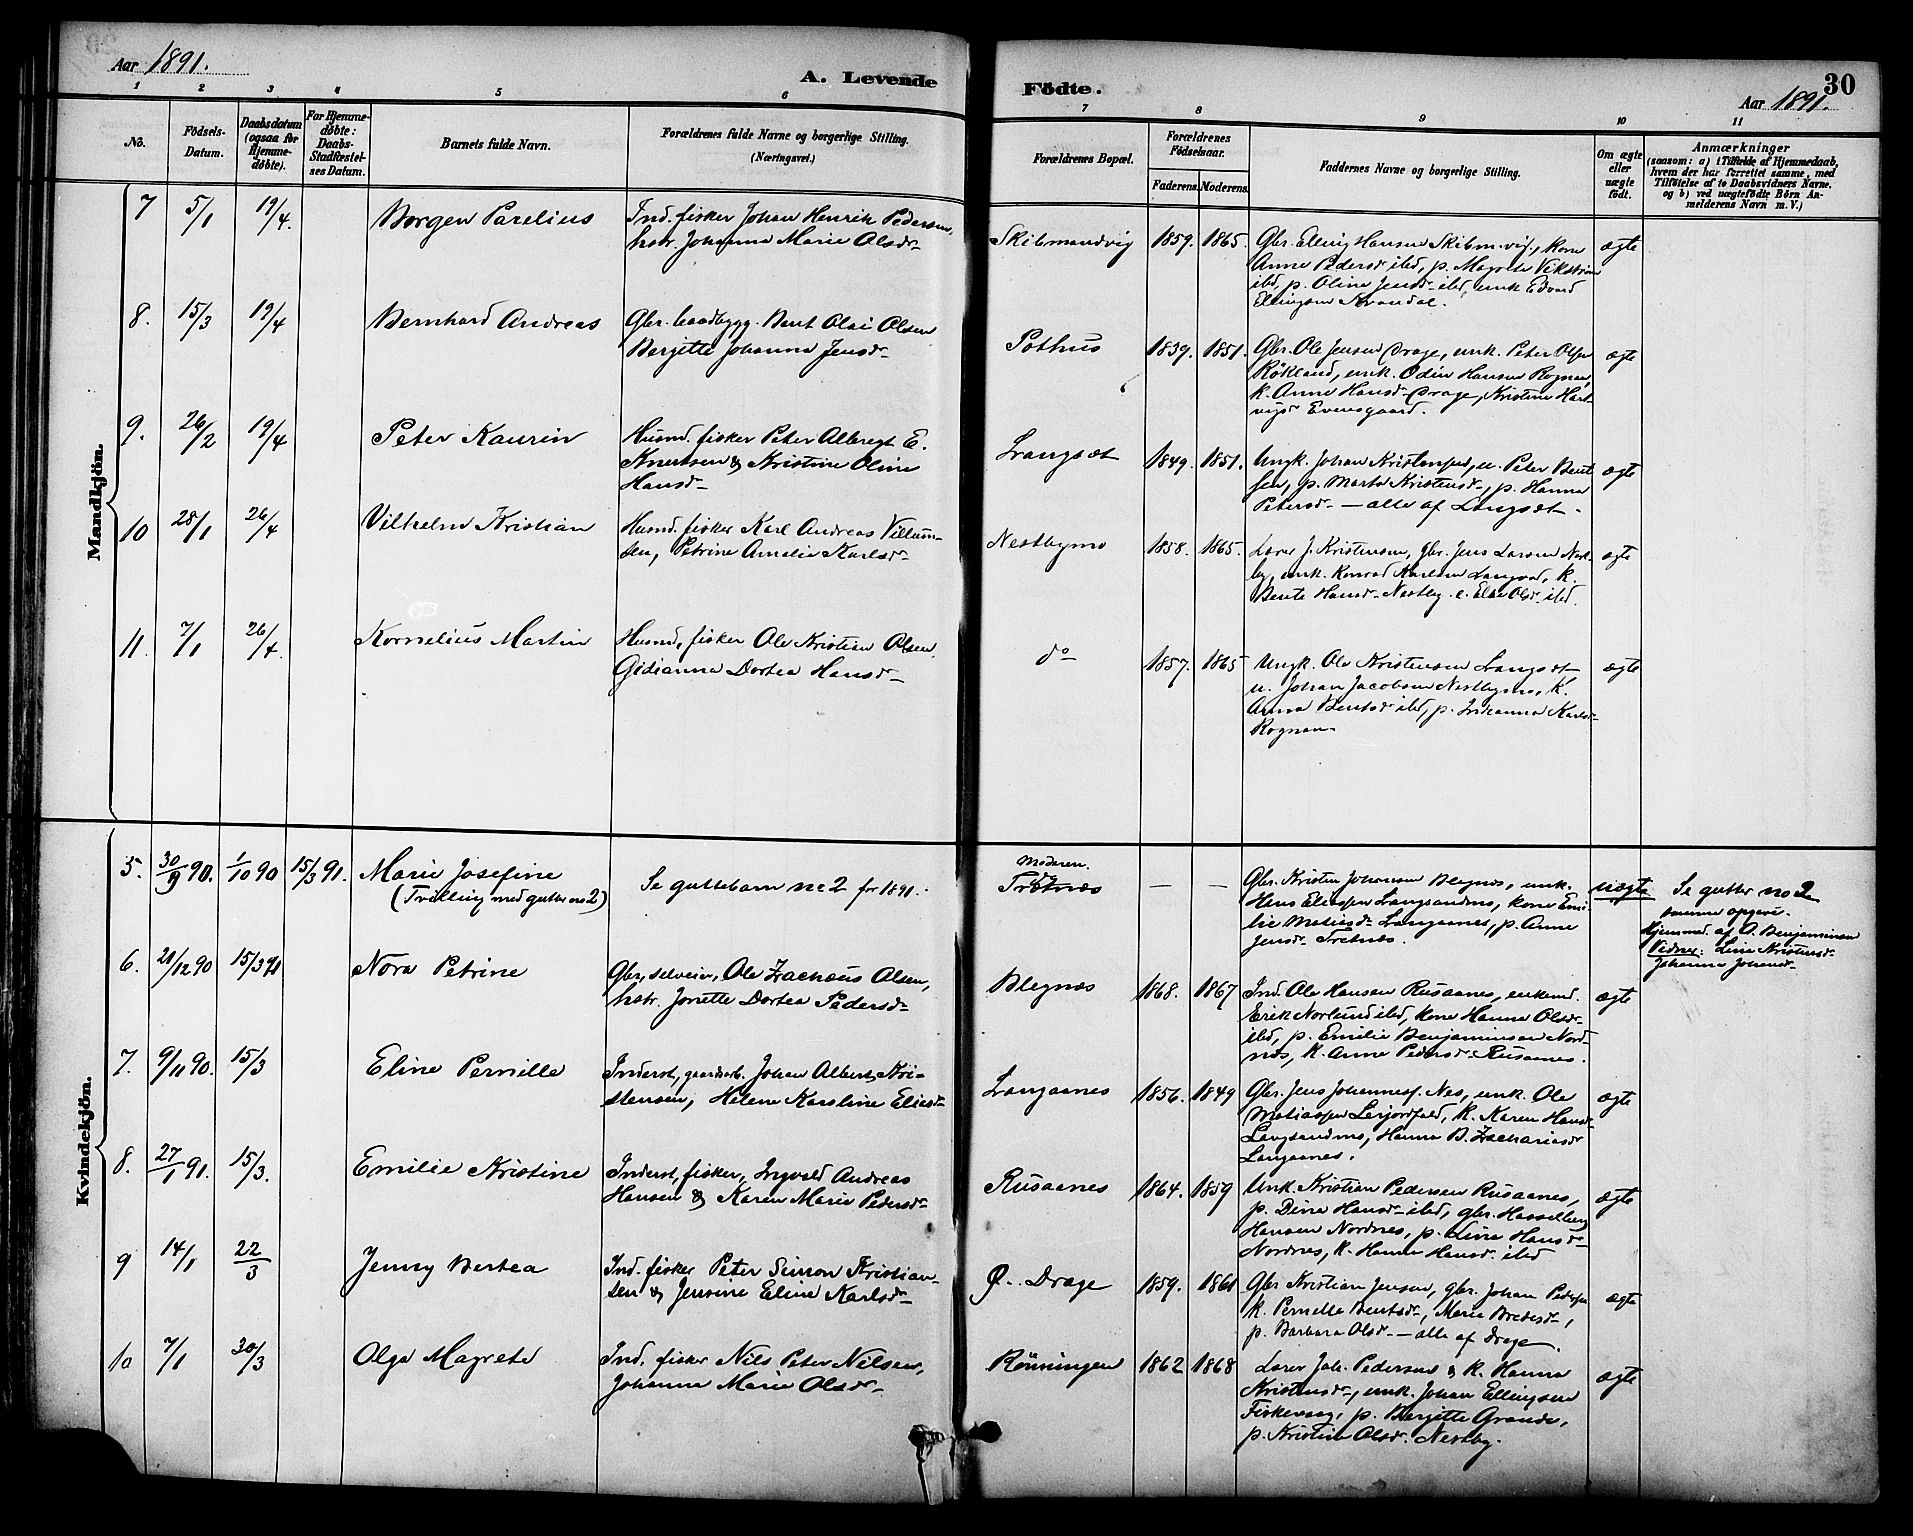 Aar 1891.
A. Levende
Födte.
30
Aar 1891.
1 2 3 4 5 6 7 8 9 10 11
No.
Födsels-Datum.
Daabsdatum (ogsaa for Hjemmedøbte).
For Hjemmedøbte: Daabs-Stadfæstelses Datum.
Barnets fulde Navn.
Forældrenes fulde Navne og borgerlige Stilling.
(Næringsvei.)
Forældrenes Bopæl.
Forældrenes Födselsaar.
Faderens. Moderens.
Faddernes Navne og borgerlige Stilling.
Om ægte eller uægte födt.
Anmærkninger
(saasom: a) i Tilfælde af Hjemmedaab,
hvem der har forrettet samme, med
Tilföielse af to Daabsvidners Navne.
og b) ved uægtefödte Börn Anmelderens Navn m. V.)
Mandkjön.
7 5/1 19/4. Borgen Parelius
Ind. fisker Johan Henrik Pedersen,
hstr. Johanna Marie Olsdr
Skibmandvig 1859. 1865.
Gbr. Elling Hansen Skibm.vig., kone
Anne Pedersd ibd, p. Magrete Vikström
ibd, p. Oline Jensd ibd, unk Edvard
Ellingsen Kvandal.
ægte
8. 15/3 19/4 Bernhard Andreas
Gbr. baadbygg. Bent Olai Olsen
Bergitte Johanna Jensd
Pothus 1839. 1851.
Gbr. Ole Jensen Drage, unk. Peter Olsen
Røkland, unk. Odin Hansen Rognan,
k. Anne Hansd Drage, Kristine Hart-
vigsd Evensgaard.
ægte
9. 26/2 19/4 Peter Kaurin
Husmd. fisker Peter Albregt E.
Knertsen & Kristine Oline
Hansd
Langsæt 1849. 1851.
Ungk. Johan Kristensen, u. Peter Bent
sen, p. Marta Kristensd, p. Hanna
Petersd – alle af Langsæt.
ægte
10 28/1 26/4 Vilhelm Kristian
Husmd. fisker Karl Andreas Villum-
sen, Petrine Amelia Karlsd
Nestbymo 1858. 1865.
Lærer J. Kristensen, gbr. Jens Larsen Nest-
by, unk. Konrad Karlsen Langvad, k.
Bente Hansd Nestby. e. Else Olsd ibd.
ægte
11. 7/1 26/4. Kornelius Martin
Husmd. fisker Ole Kristian Olsen,
Gidianna Dortea Hansd
do 1857. 1865
Ungk. Ole Kristensen Langsæt
u. Johan Jacobsen Nestbymo, k.
Anna Bentsd ibd, p. Karlsd
Rognan
ægte
Kvindekjön.
5. 30/9 90. 1/10 90 15/3 91. Marie Josefine
(Trilling med gutter no 2)
Se guttebarn no 2 for 1891.
Moderen.
Tretnæs – –
Gbr. Kristen Johansen Blegnæs, unk.
Hans Eliassen Langsandmo, kone Emi-
lie Matiasd Langaanes, p. Anne
Jensd Tretnæs.
uægte
Se gutter no 2
samme opgave.
Hjemmed. af A. Benjaminsen
Vidner: Line Kristensd
Johanna Johansd
6. 21/12 90 15/3 91 Nora Petrine
Gbr, selveier, Ole Zachæus Olsen,
hstr. Jonette Dortea Pedersd
Blegnæs 1868. 1867
Ind. Ole Hansen Rusaanes, enkemd.
Erik Norlund ibd, kone Hanna Olsdr
ibd, p. Emilie Benjaminsen Nord-
næs, k. Anne Pedersd Rusaanes.
ægte
7. 9/11 90. 15/3 Eline Pernille
Inderst, gaardarb. Johan Albert Kri-
stensen, Helene Karoline Eliasd
Langaanes 1856. 1849
Gbr. Jens Johannesf. Nes, unk. Ole
Matiassen Lerjordfald, k. Karen Hansd
Langsandmo, Hanna B. Zachariasdr
Langaanes.
ægte
8. 27/1 91. 15/3. Emilie Kristine
Inderst, fisker, Ingvald Andreas
Hansen & Karen Marie Pedersd
Rusaanes 1864. 1859
Unk. Kristian Pedersen Rusaanes,
p. Dina Hansd ibd, gbr. Hasselberg
Hansen Nordnes, p. Line Hansd
Nordnes, k. Hanna Hansd. ibd
ægte
9 14/1 22/3 Jenny Bertea
Ind. fisker Peter Simon Kristian-
sen & Jensine Eline Karlsd
Ø. Drage 1859. 1861
Gbr Kristian Jensen, gbr. Johan Peders
k. Pernella Bentsd, Marie Bredesd,
p. Barbara Olsd – alle af Drage.
ægte
10 7/1 30/3 Olga Magrete
Ind. fisker Nils Peter Nilsen,
Johanna Marie Olsd
Rönningen 1862 1868
Lærer Joh. Pedersen & k. Hanna
Kristensd, unk. Johan Ellingsen
Fiskevaag, p. Bergitte Grande,
p. Kristine Olsd. Nestby.
ægte